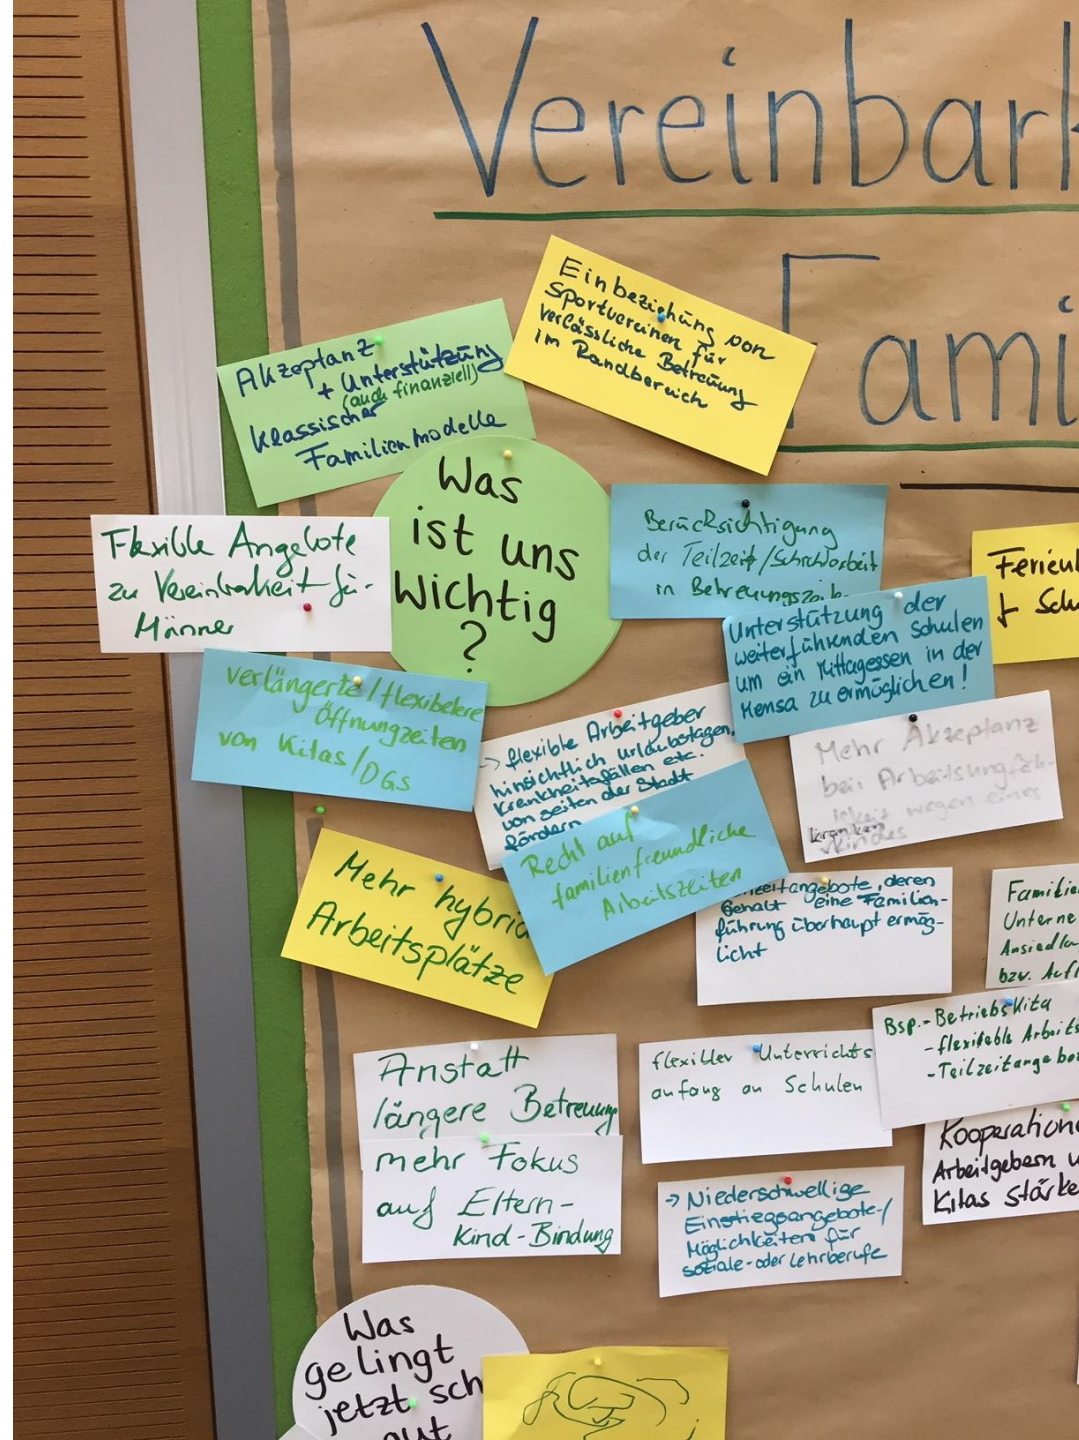 Vereinbark
Fami
Einbeziehung von
Sportvereinen für
verlässliche Betreuung
im Randbereich
Akzeptanz
+ Unterstützung
(auch finanziell)
klassischer
Familienmodelle
Was
ist uns
Wichtig
?
Flexible Angebote
zu Vereinbarkeit für
Männer
Berücksichtigung
der Teilzeit/Schichtarbeit
in Betreuungszeit
Ferien
f Sch
Unterstützung der
weiterführenden Schulen
um ein Mittagessen in der
Mensa zu ermöglichen!
verlängerte/flexiblere
Öffnungzeiten
von Kitas/OGS
-> flexible Arbeitgeber
hinsichtlich Urlaubstagen,
Krankheitsfällen etc.
von seiten der Stadt
fördern
Mehr Akzeptanz
bei Arbeitsunfäh-
igkeit wegen eines
kranken
Kindes
Recht auf
familienfreundliche
Arbeitszeiten
Mehr hybrid
Arbeitsplätze
zeitangebote, deren
Gehalt eine Familien-
führung überhaupt ermög-
licht
Familie
Unterne
Ansiedlu
bzw. Auf
Bsp.- BetriebsKita
- flexibable Arbeits
- Teilzeitangebo
Anstatt
längere Betreuung
mehr Fokus
auf Eltern-
Kind-Bindung
flexibler Unterrichts
anfang an Schulen
Kooperatione
Arbeitgebern u
Kitas Stärke
-> Niederschwellige
Einstiegsangebote/
Möglichkeiten für
soziale- oder Lehrberufe
Was
gelingt
jetzt sch
gut